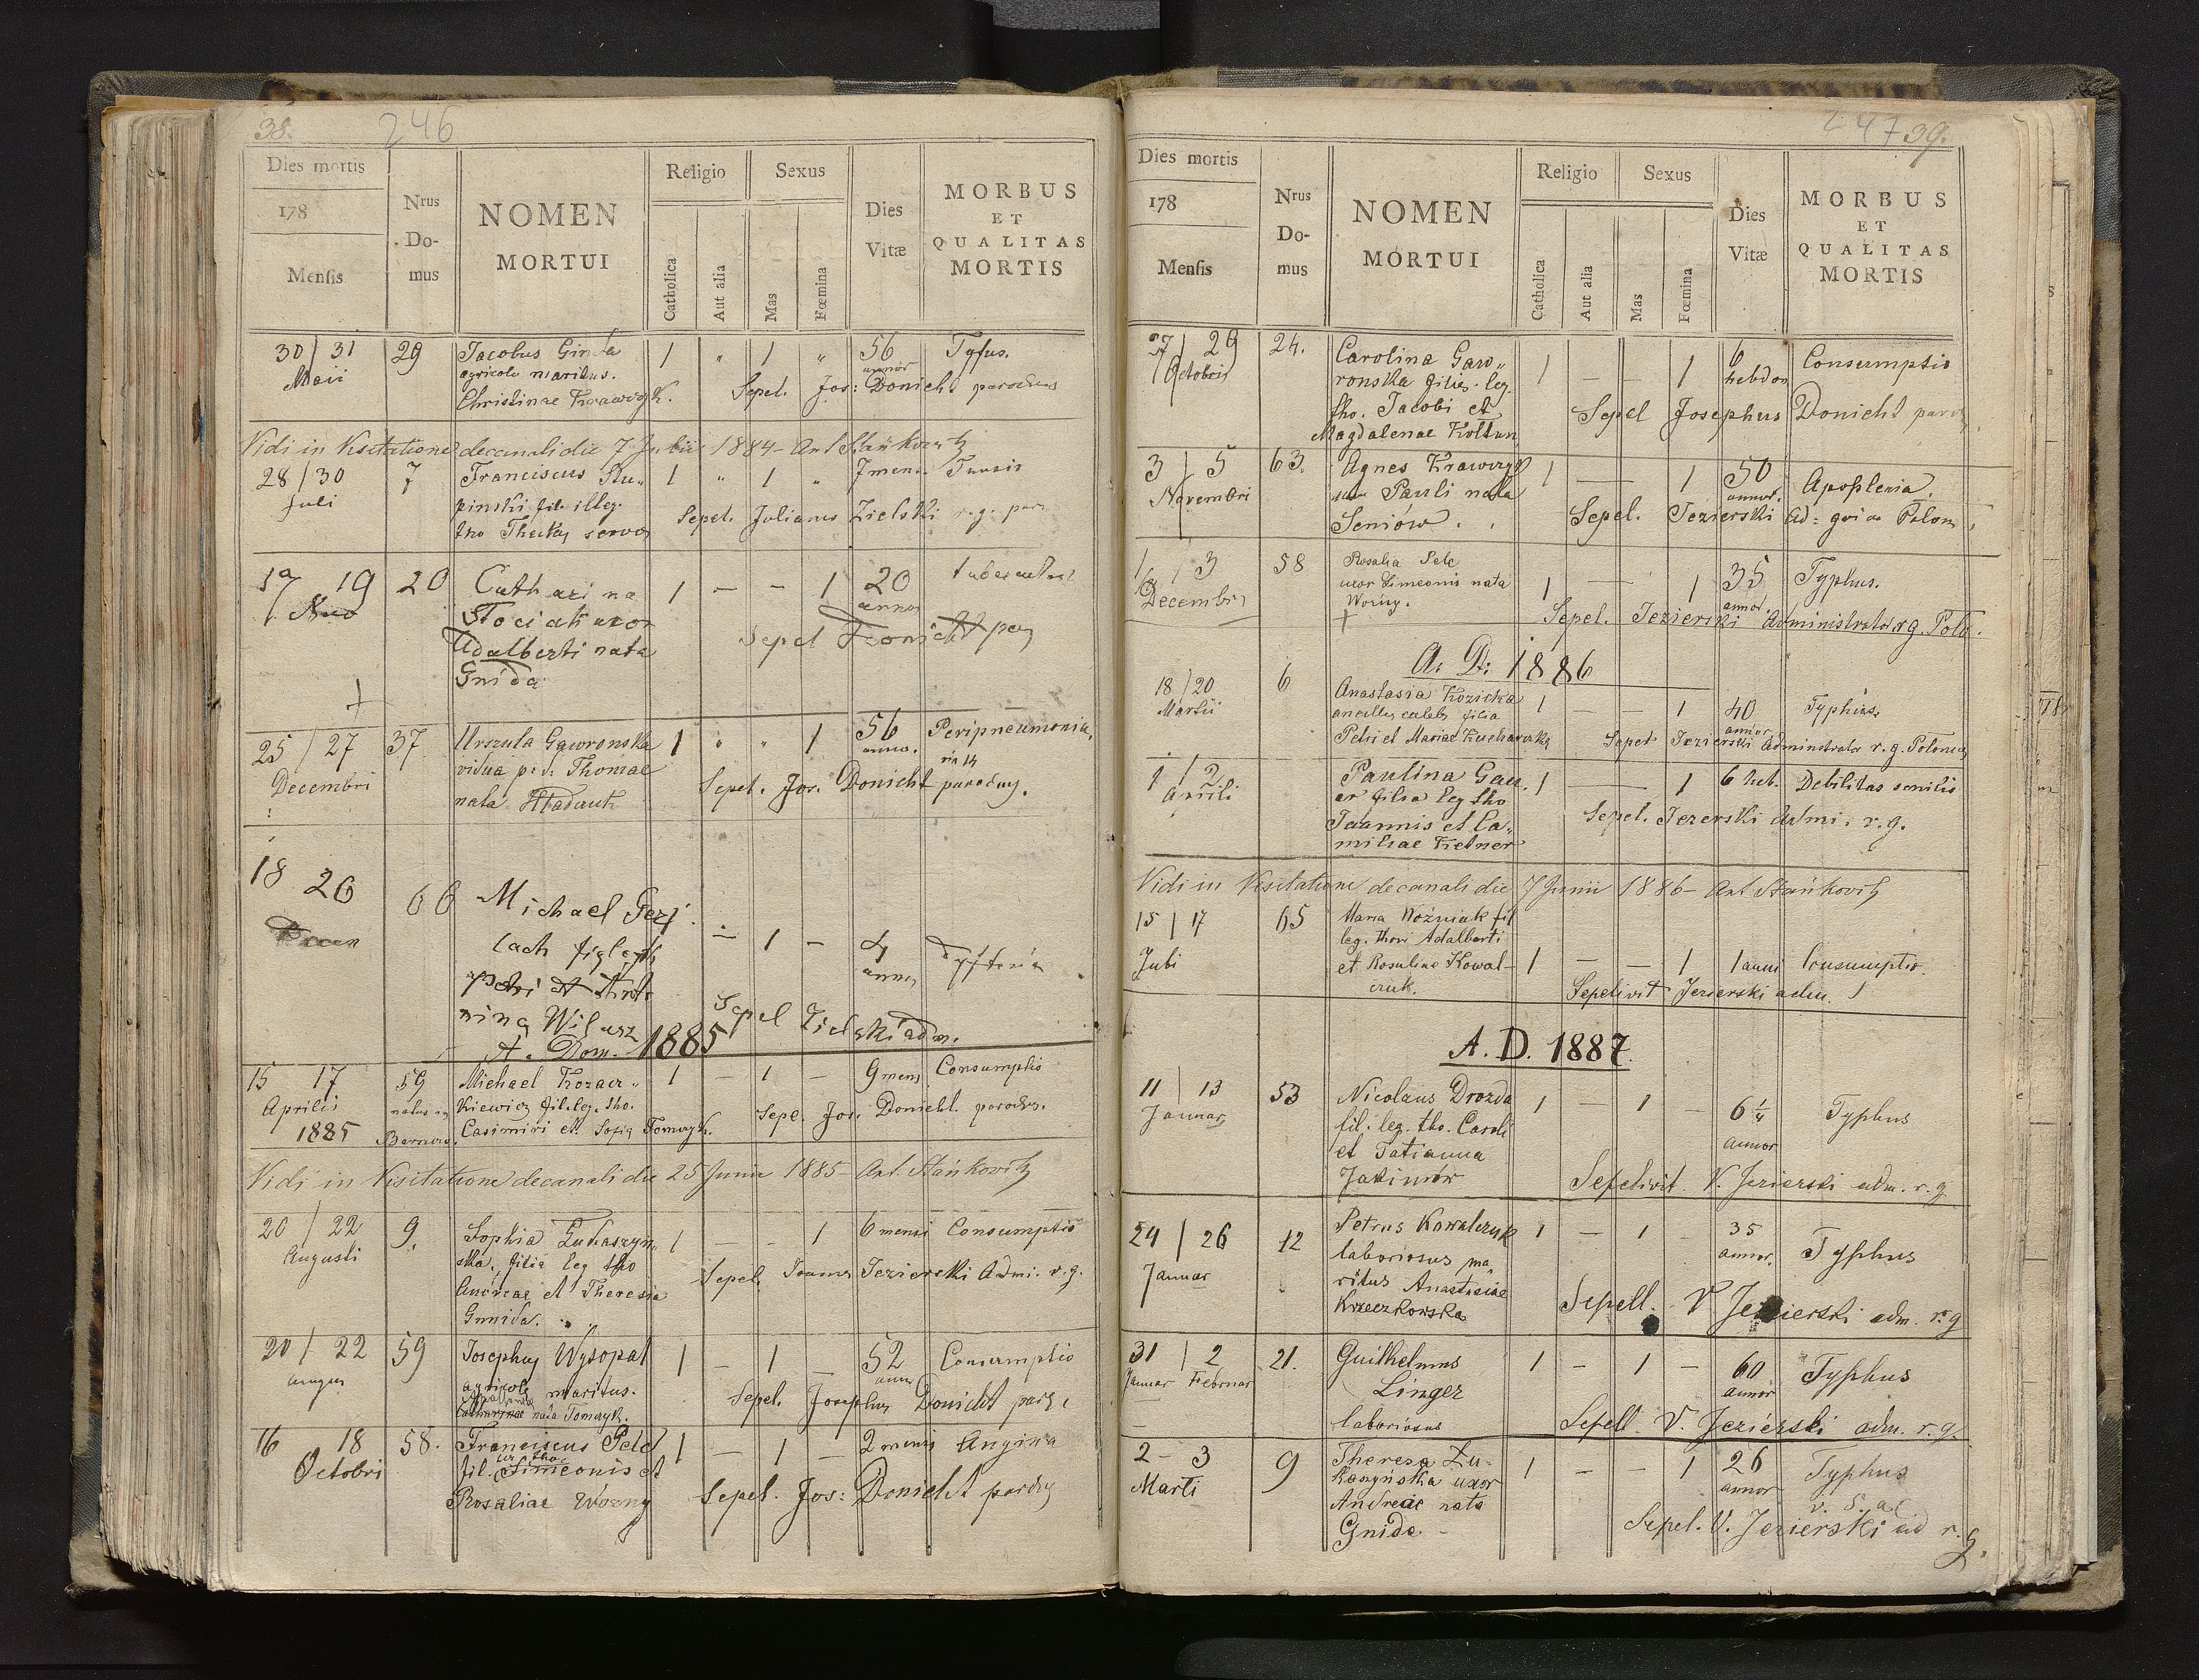 38.
246
Dies mortis
178
Mensis
Nrus
Do-
mus
NOMEN
MORTUI
Religio
Catholica
Aut alia
Sexus
Mas
Fœmina
Dies
Vitæ
MORBUS
ET
QUALITAS
MORTIS
30 / 31 29 Jacobus Ginda 1 " 1 " 56 Tyfus.
Maii agricola maritus. annor
Christinae Krawczyk. Sepel. Jos: Donicht parochus
Vidi in Visitatione decanali die 7 Julii 1884 - Ant Stańkovits
28/30 7 Franciscus Stu- 1 " 1 " 7 men. Tussis
Juli
pinski fil. illeg.
tho Theklae Sepel. Julianus Zielski r. g. par.
17 19 20 Catharina 1 - - 1 20
Stociak uxor annor
Adalberti nata Sepel Donicht
Gnida
25 / 27 37 Urszula Gawronska 1 " " 1 56 Peripneumonia
Decembri vidua p: d: Thomae anno.
nata Sepel. Jos. Donicht parochus.
18 26 66 Michael
- 1 - 4 Dyfteria
annor
Petri et Anto
nina Wilusz Sepel Zielski adm.
A. Dom. 1885
15 17 59 Michael Kozacz- 1 - 1 - 9 mens Consumptio
Aprilis natus in kiewicz fil. leg. tho.
1885 Casimiri et Sofia Tomczyk. Sepe. Jos. Donicht parochus.
Vidi in Visitatione decanali die 25 Junii 1885 - Ant. Stańkovits
20 / 22 9. Sophia Lukaszyn- 1 - - 1 6 mensi Consumptio
Augusti ska, filia leg tho
Andreae et Theresia Sepel. Joannes Jezierski Admi. r. g.
Gnnida.
20 / 22 59 Josephus Wysopal 1 - 1 - 52 Consumptio
augus agricola maritus. ann
nata Tomczyk. Sepel. Josephus Donicht
16 18 58. Franciscus Pelc 1 - 1 - 2 mensi Angina
Octobri fil. leg. tho. Simeonis et
Rosaliae Wozny Sepel. Jos: Donicht
247
39.
Dies mortis
178
Mensis
Nrus
Do-
mus
NOMEN
MORTUI
Religio
Catholica
Aut alia
Sexus
Mas
Fœmina
Dies
Vitæ
MORBUS
ET
QUALITAS
MORTIS
27 / 29 24. Carolina Gaw- 1 - - 1 6 Consumptio
Octobris ronska filia leg. hebdom
tho. Jacobi et Sepel Josephus Donicht
Magdalenae Koltun
3 / 5 63. Agnes Krawczyk 1 - 1 50 Apoplexia.
Novembri uxor Pauli nata annor.
Seniów. Sepel. Jezierski Ad:
1 / 3 58 Rosalia Pelc
uxor Simeonis nata 1 - 1 35 Typhus.
Decembris Wozny. annor.
Sepel. Jezierski Administrator r. g. Polo.
A. D: 1886
18 / 20 6 Anastasia Kozicka
Martii ancilla caleb filia 1 - - 1 40 Typhus.
Petri et Mariae Kucharska annor.
Sepel Jezierski Administrator r. g.
1 / 2 Paulina Gau- 1 - 1 6 heb. Debilitas senilis
Aprili er filia leg tho
Joannis et Ca- Sepel. Jezerski Admi. r. g.
millae Ketner
Vidi in Visitatione decanali die 7 Junii 1886 - Ant Stańkovits
15 / 17 65 Maria Woźniak fil
leg. thori Adalberti
Juli et Rosaline Kowal- 1 - - 1 1 anni Consumptio.
czuk. Sepelivit Jezierski adm.
A. D. 1887.
11 / 13 53 Nicolaus Drozda 1 - 1 - 6 1/4 Typhus
Januar fil. leg. tho. Caroli annor
et Tatianna
Jakimów Sepelivit V. Jezierski adm. r. g
24 / 26 12 Petrus Kowalczuk 1 - 1 - 35 Typhus
laboriosus ma- annor.
Januar ritus Anastasiae
Krzeczkowska Sepell. V Jezierski adm. r. g
31 / 2 21. Guilhelmus 1 - 1 - 60 Typhus
Januar Februar Linger annor
laboriosus Sepell V. Jezierski adm. r. g.
2 - 3 9 Theresa Łu- 1 - - 1 26 Typhus
Marti kaszyńska uxor annor
Andreae nata
Gnida - Sepel. V. Jezierski ad r. g.